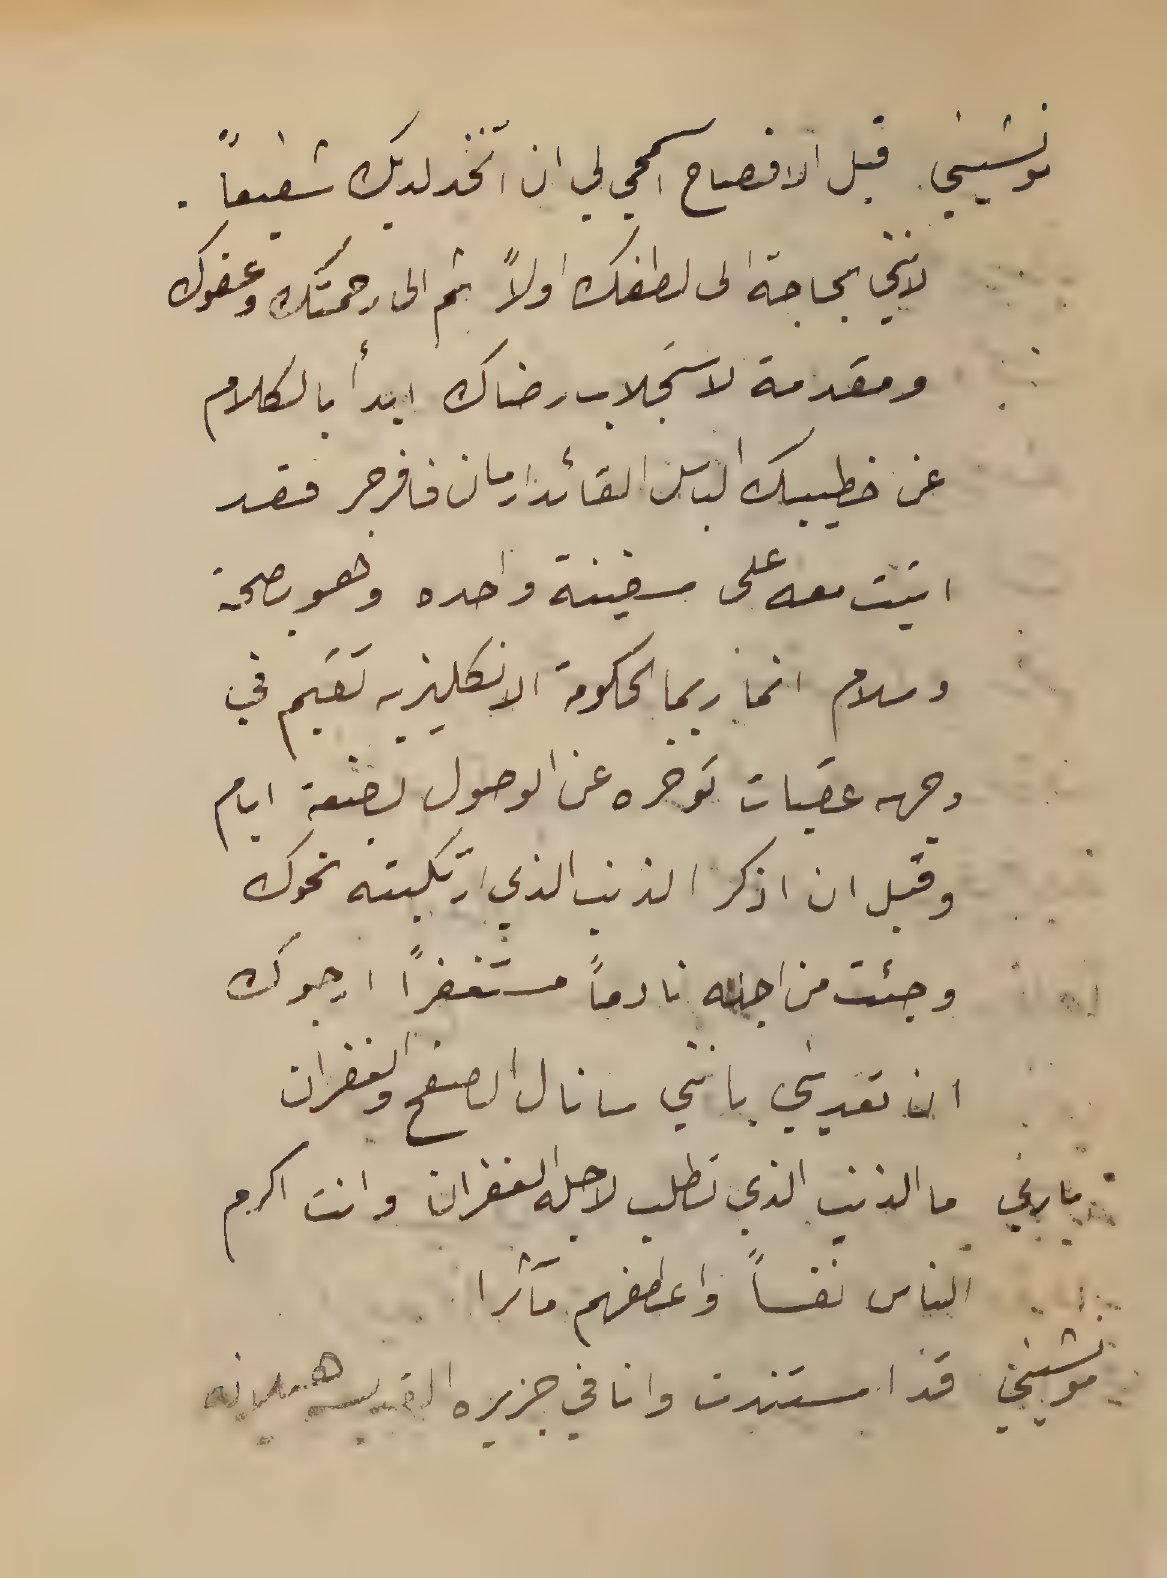 مونشيني قبل الافصاح اسمحي لي ان اتخذ لديك شفيعاً .
لانني بحاجة الى لطفك اولاً ثم الى رحمتك وعفوك
ومقدمة لاستجلاب رضاك ابدأ بالكلام
عن خطيبك الباسل القائد ارمان فافرجر فقد
اتيت معه على سفينة واحده وهو بصحة
وسلام انما ربما الحكومة الانكليزيه تقيم في
وجهه عقبات تؤخره عن الوصول لبضعة ايام
وقبل ان اذكر الذنب الذي ارتكبته نحوك
وجئت من اجله نادماً مستغفراً ارجوك
ان تعديني بانني سانال الصفح والغفران
ماري ما الذنب الذي تطلب لاجله الغفران وانت اكرم
الناس نفساً واعطفهم مآثرا
مونشيني قد استندت وانا في جزيره القديسه هيلانه